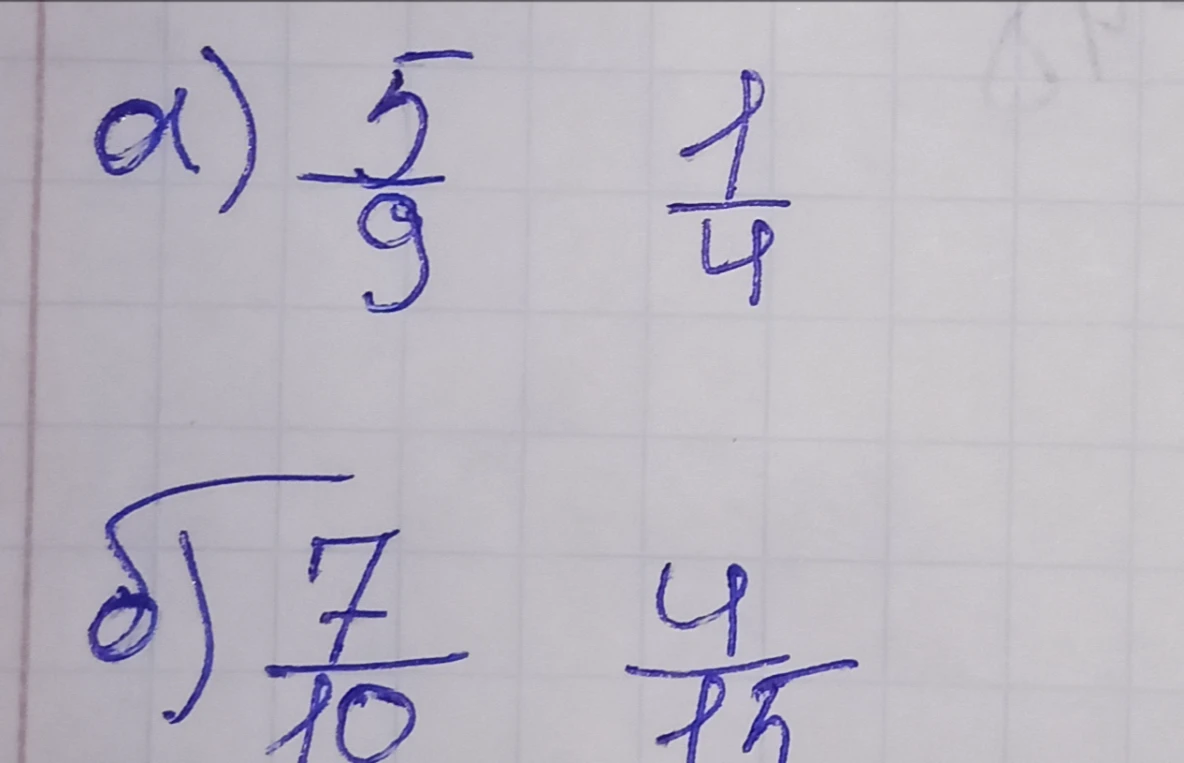 а) 5/9 1/4
б) 7/10 4/15